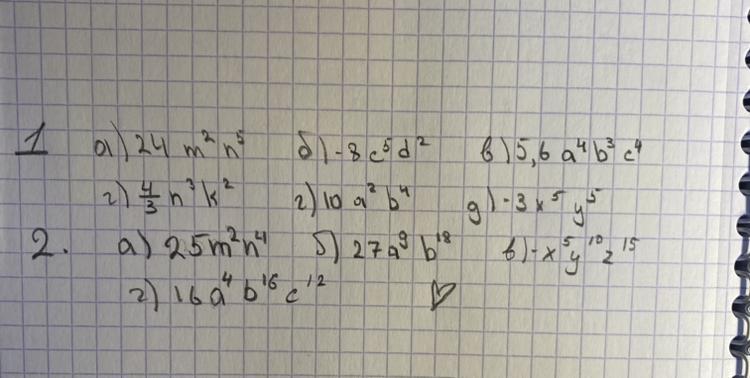 1 а) 24 m²n⁵ б) -8 c⁵d² в) 5,6 a⁴b³c⁴
г) 4/3 n³k² г) 10 a²b⁴ д) -3x⁵y⁵
2. а) 25m²n⁴ б) 27a⁹b¹⁸ в) -x⁵y¹⁰z¹⁵
г) 16a⁴b¹⁶c¹²